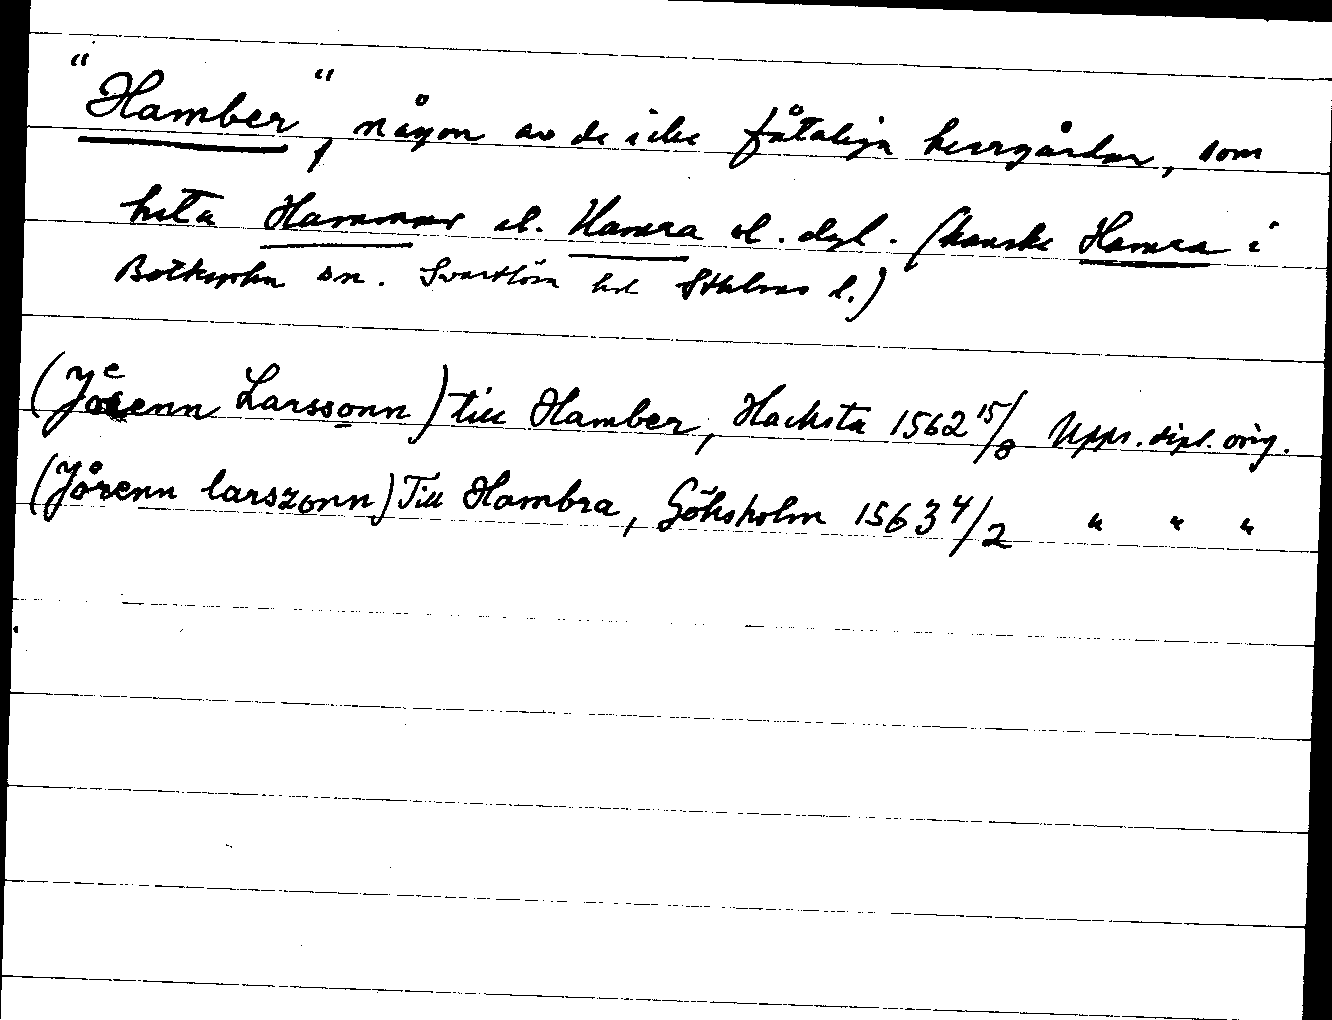 "Hamber", någon av de icke fåtaliga herrgårdar, som
heta Hammar el. Hamra el. dyl. (kanske Hamra i
Botkyrka sn. Svartlösa hd Sthlms l.)
(Jörenn Larssonn) till Hamber, Hacksta 1562 15/8 Upps. dipl. orig.
(Jörenn larszonn) Till Hambra, Göksholm 1563 4/2 " " "